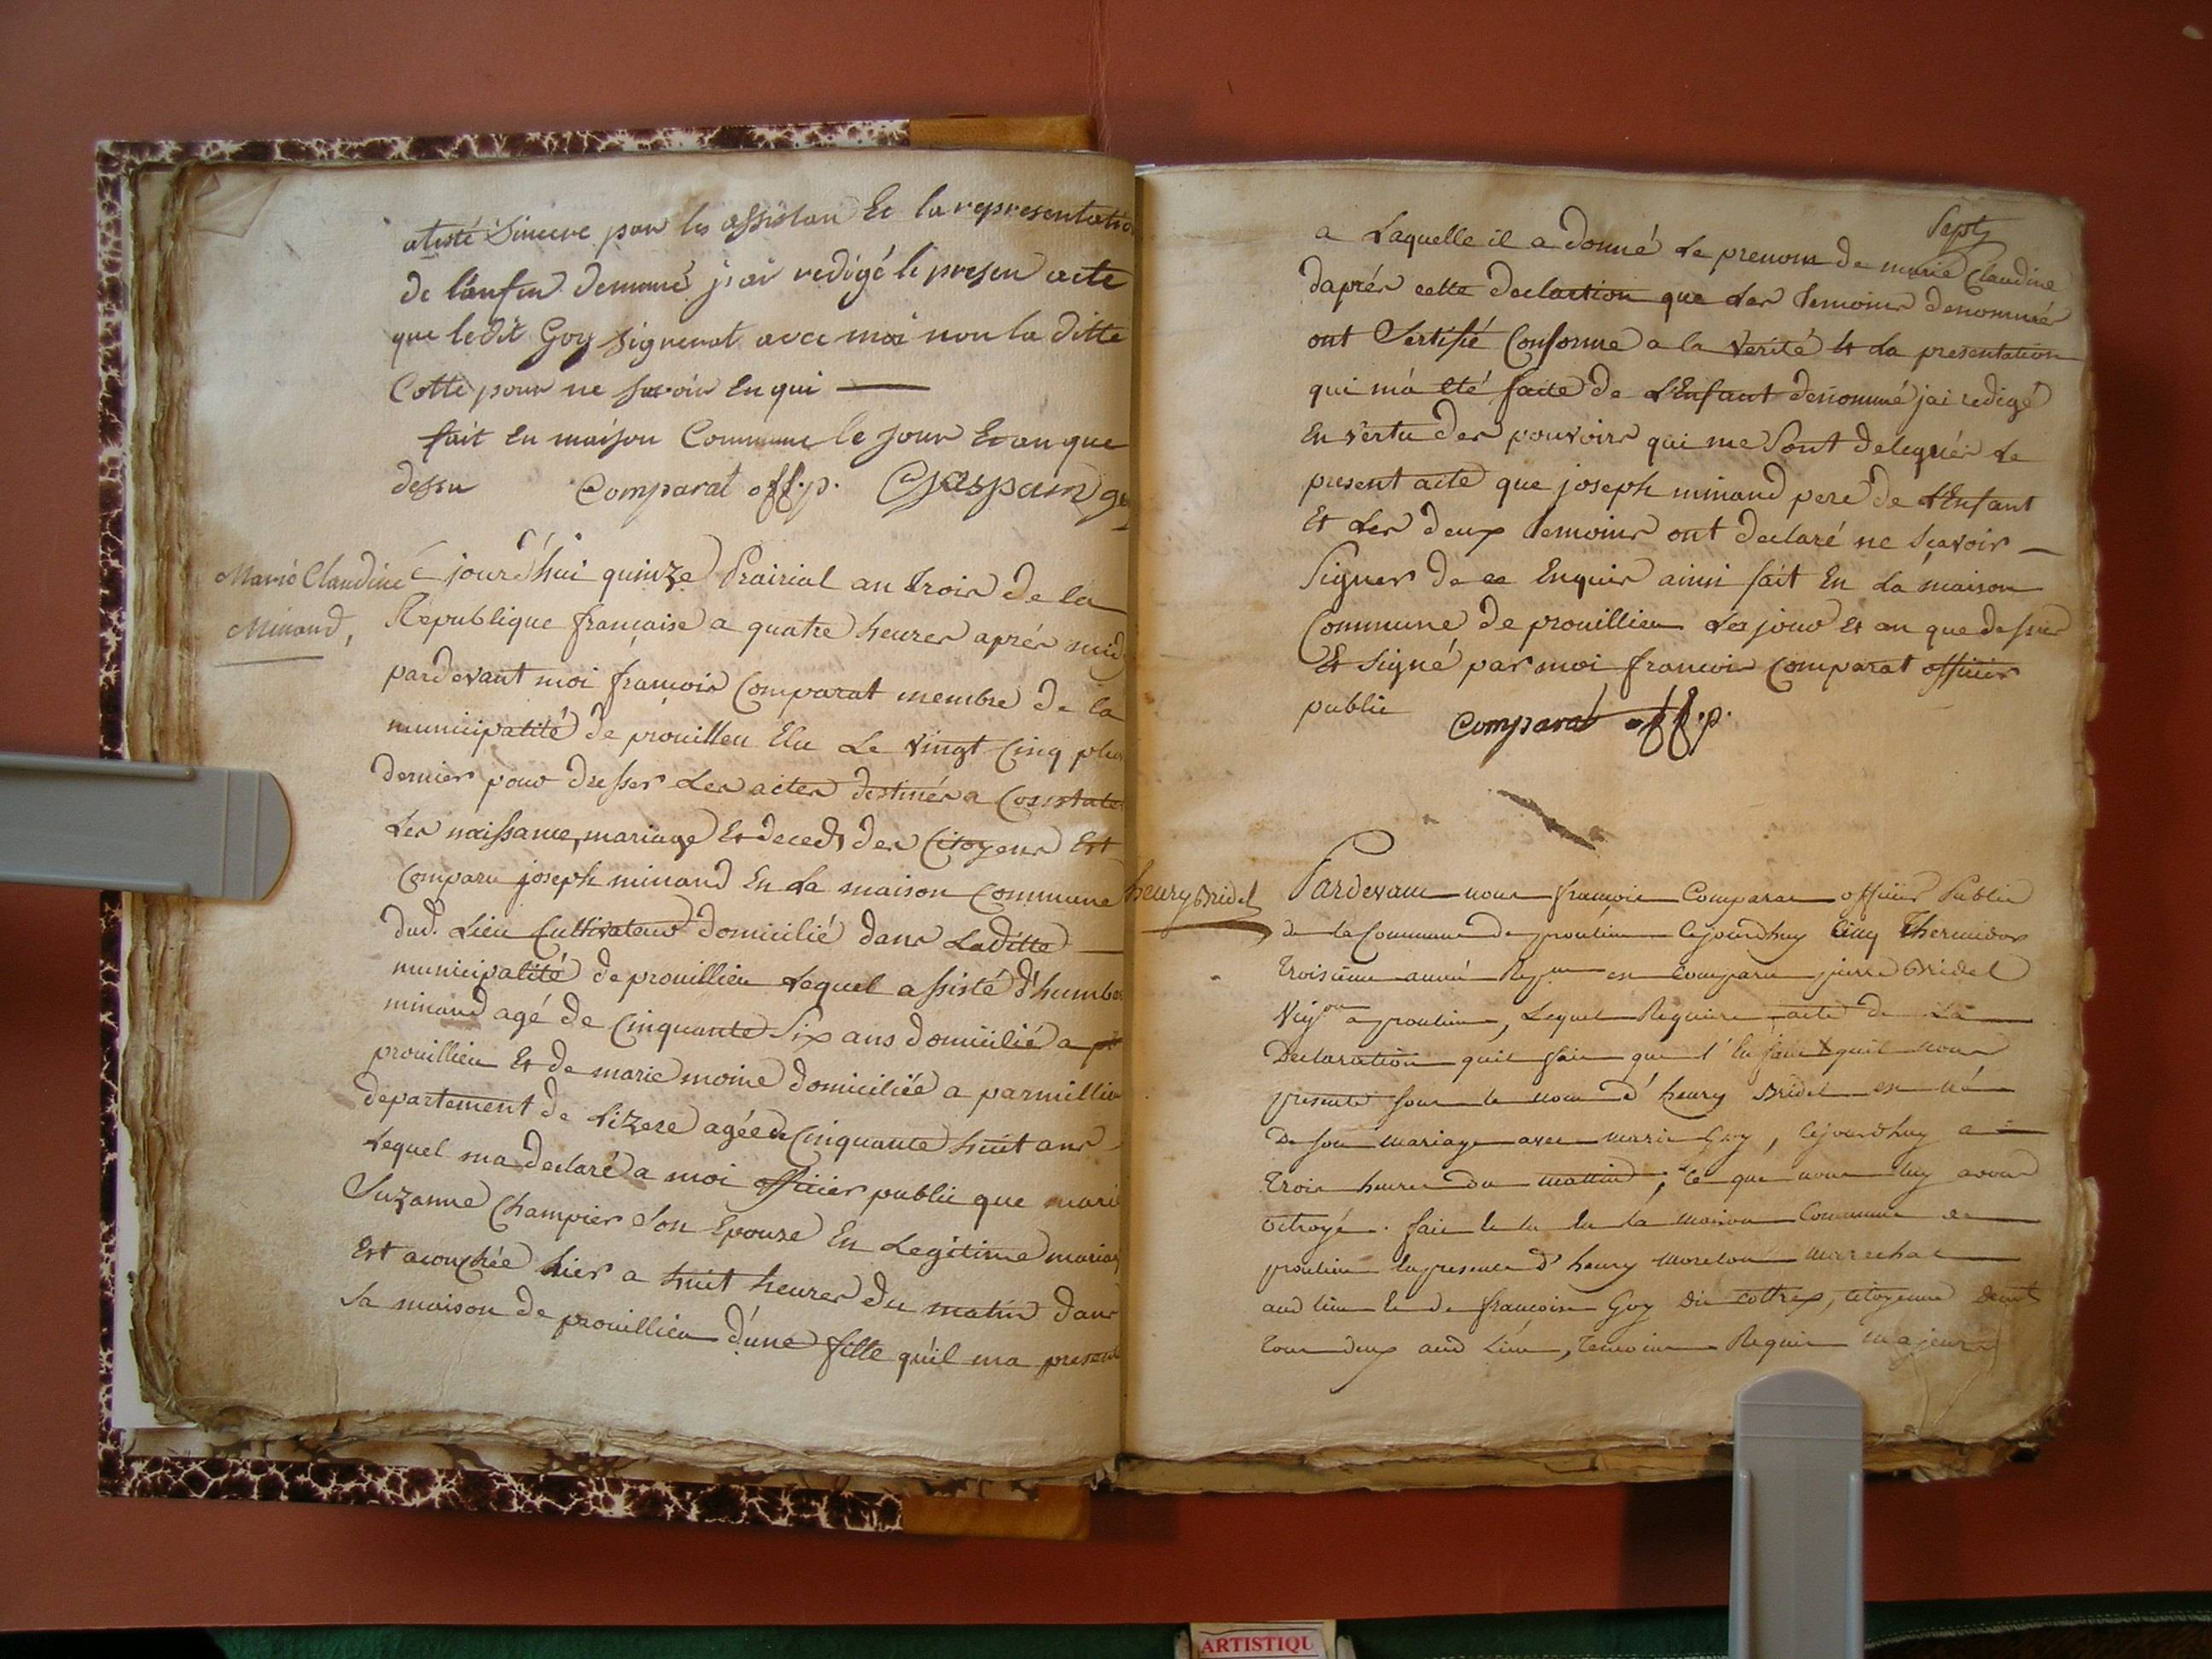 atesté Sincere par les assistan Et la representatio
de l'anfen denomé j'ai redigé le presen acte
que le dit Goy signerat avec moi non la ditte
Cotte pour ne savoir En qui
fait En maison Commune le jour Et an que
dessu Comparat off. p. Gaspain go
Marie Claudine
Minand,
C jourd'hui quinze Prairial an trois de la
Republique française a quatre heures aprés mid
pardevant moi françois Comparat membre de la
municipalité de prouilleu Elu Le vingt Cinq plu
dernier pour dresser Les actes destinés a Constate
Les naissance, mariage Et deceds des Citoyens Est
Comparu joseph minand En La maison Commune
dud. Lieu Cultivateur domicilié dans Laditte
municipalité de prouillieu Lequel assisté d'humbe
minand agé de Cinquante Six ans domicilié a
prouillieu Et de marie moine domiciliée a parmillieu
departement de Lizere agée de Cinquante huit ans
Lequel ma declaré a moi officier public que mari
Suzanne Champier Son Epouse En Legitime mariag
Est acouchée hier a huit heures du matin dans
Sa maison de prouillieu d'une fille qu'il ma present
Sept
a Laquelle il a donné Le prenom de marie Claudine
daprés cette declartion que Les temoins denommés
ont Sertifié Conforme a la verité Et La presentation
qui m'a été faite de L'Enfant denommé jai redigé
En vertu des pouvoirs qui me Sont delegués Le
present acte que joseph minand pere de L'Enfant
Et Les deux temoins ont declaré ne Scavoir
Signer de ce Enquis ainsi fait En La maison
Commune de prouillieu Les jour Et an que dessus
Et Signé par moi françois Comparat officier
public Comparat off. p.
henry Bridel
Pardevant nous françois Comparat officier Public
de la Commune de proulieu Cejourdhuy Cinq Thermidor
troisieme année Rep.ne est comparu pierre Bridel
a proulieu, Lequel Requiere acte de La
Declaration quil fait que l'Enfant quil nous
presente sous le nom d'henry Bridel est né
De son mariage avec marie Goy, Cejourdhuy a
trois heures du mattin; Ce que nous luy avons
octroyé. fait le lu En la maison Commune de
proulieu En presence d'henry moreton marechal
aud lieu Et de françoise Goy dit cottex, citoyenne
tous deux aud Lieu, temoins Requis majeurs
ARTISTIQU